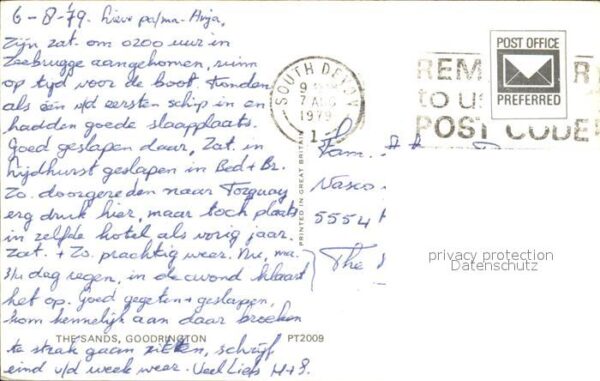 6-8-79. Lieve pa/ma-Anja,
Zijn zat. om 0200 uur in
Zeebrugge aangekomen, ruim
op tijd voor de boot. Konden
als één v/d eersten schip in en
hadden goede slaapplaats.
Goed geslapen daar, Zat. in
Lijdhurst geslapen in Bed + Br.
Zo. doorgereden naar Torquay
erg druk hier, maar toch plaats
in zelfde hotel als vorig jaar.
Zat. + Zo. prachtig weer. Nu, ma.
dag regen, in de avond klaart
het op. Goed gegeten + geslapen,
kom kennelijk aan daar broeken
te strak gaan zitten, schrijf
eind v/d week weer. Veel liefs H+S.
THE SANDS, GOODRINGTON PT2009
PRINTED IN GREAT BRITAIN
SOUTH DEVON
7 AUG
1979
1
REM
to u
POST CODE
POST OFFICE
PREFERRED
Fam.
Vasco
5554
The
privacy protection
Datenschutz